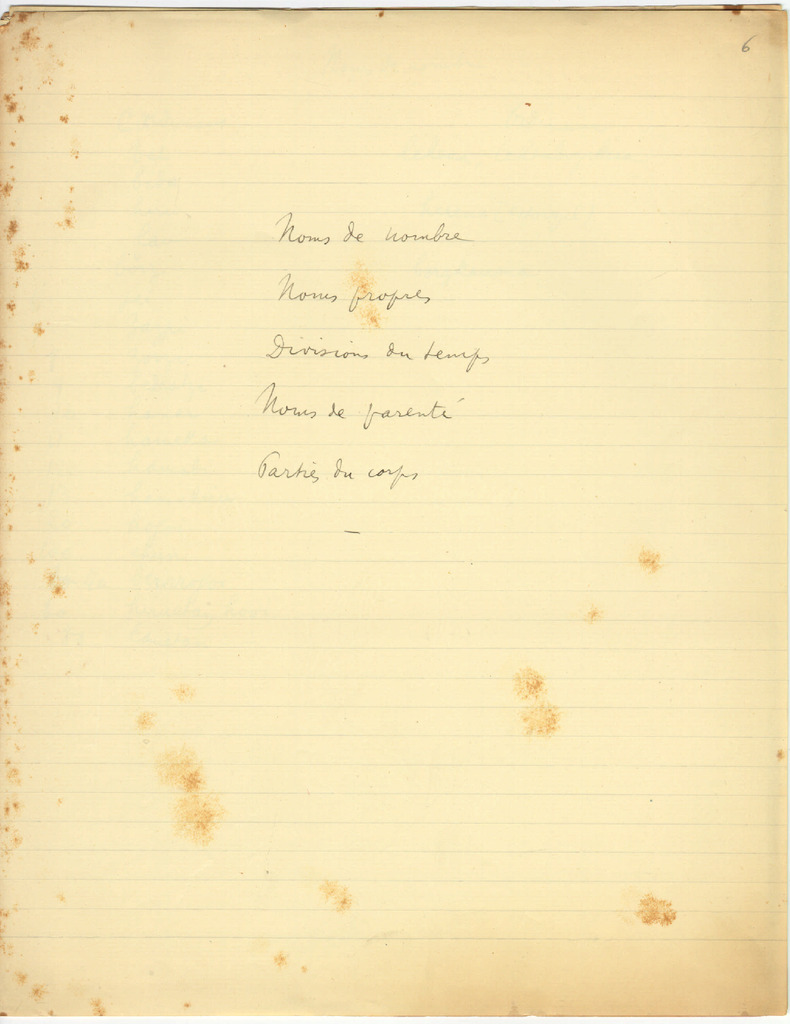 6
Noms de nombre
Noms propres
Divisions du temps
Noms de parenté
Parties du corps
—